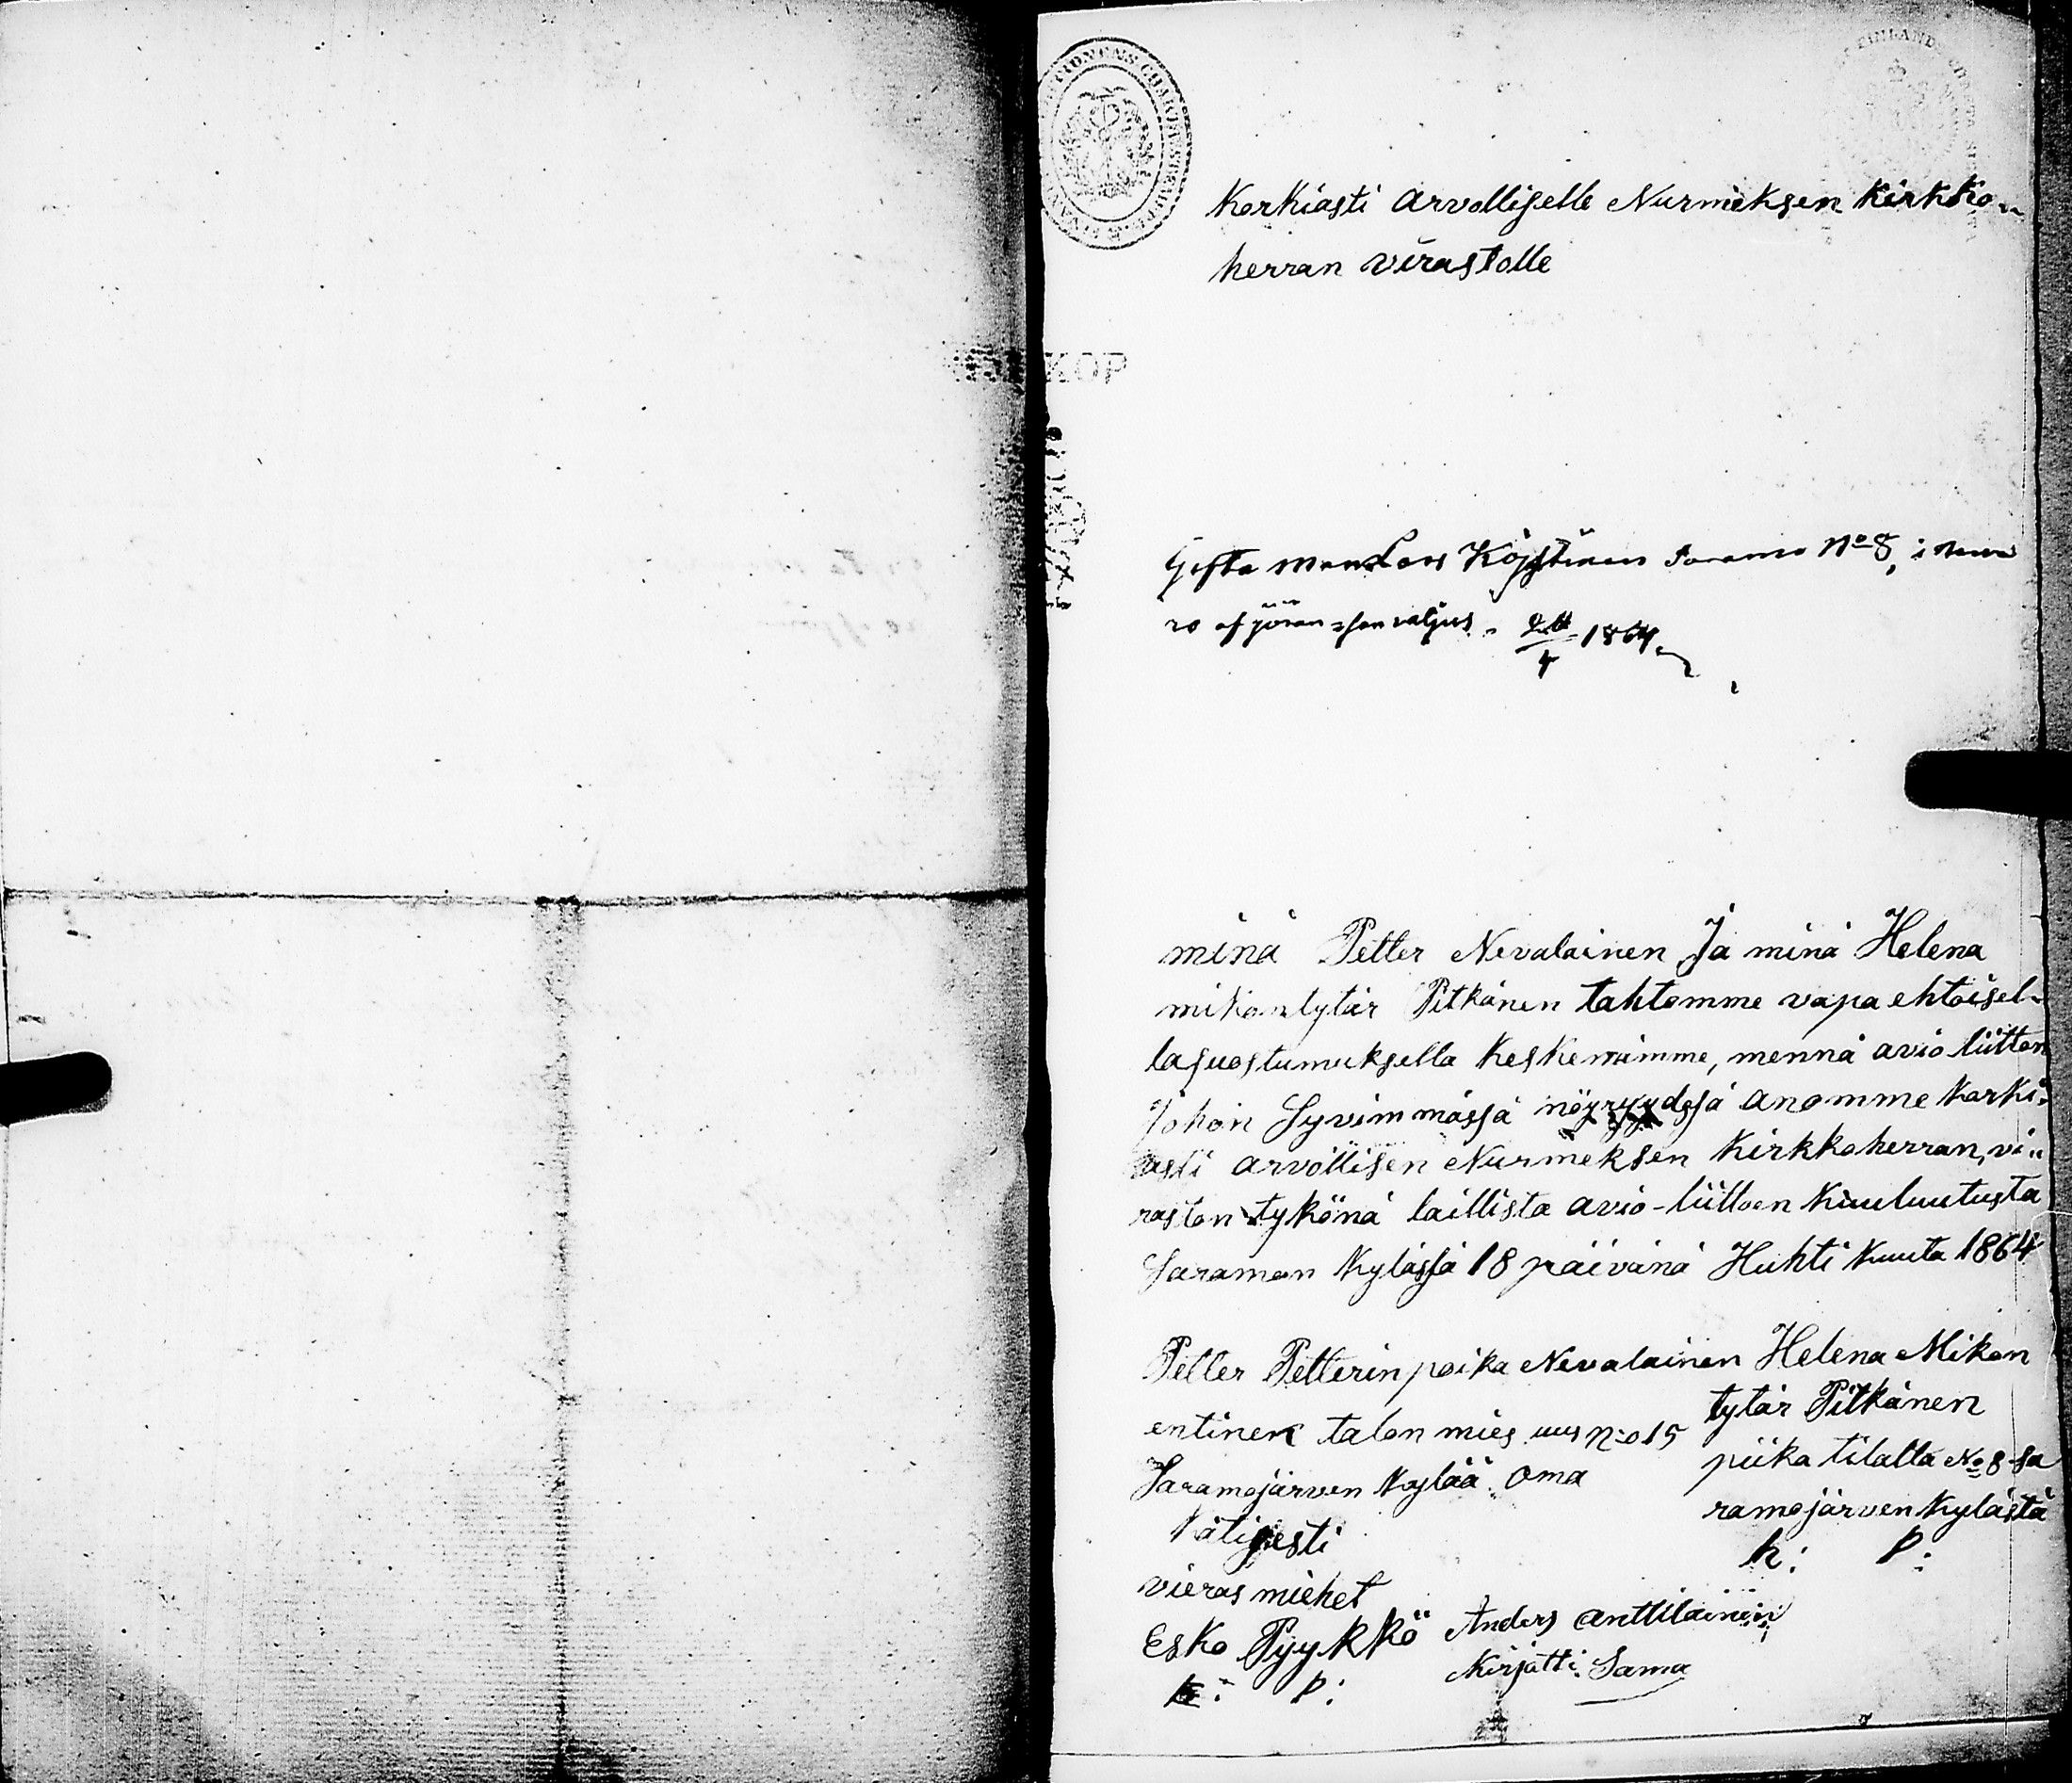 KOP
Korkiasti arvolliselle Nurmeksen Kirkko„
herran virastolle
Gifta man Lars Saramo No 8, i
20 af 1864
minä Petter Nevalainen Ja minä Helena
mikontytär Pitkänen tahtomme vapa ehtoisel„
la suostumuksella Keskenämme, mennä avio liitton
Johon Syvimmässä nöyryydesä anomme korki„
asti arvollisen Nurmeksen Kirkkoherran, vi„
raston tykönä laillista avio-liitoen Kuuluutusta
Saramon Kylässä 18 päivänä Huhti Kuuta 1864
Petter Petterin poika Nevalainen
entinen talon mies uus No 15
Saramojärven Kylää oma
Kätisesti
Helena Mikon
tytär Pitkänen
piika tilalta No 8 Sa
ramojärven Kylästä
h: P:
vieras miehet
Esko Pyykkö Anders anttilainen
P: Kirjatti Sama